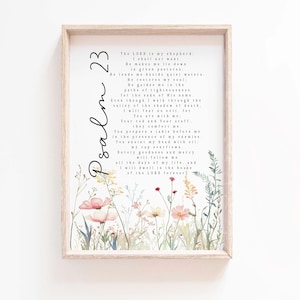 Psalm 23
The LORD is my shepherd;
I shall not want.
He makes me lie down
in green pastures.
He leads me beside quiet waters.
He restores my soul;
He guides me in the
paths of righteousness
for the sake of His name.
Even though I walk through the
valley of the shadow of death,
I will fear no evil, for
You are with me;
Your rod and Your staff,
they comfort me.
You prepare a table before me
in the presence of my enemies
You anoint my head with oil;
my cup overflows.
Surely goodness and mercy
will follow me
all the days of my life, and
I will dwell in the house
of the LORD forever.